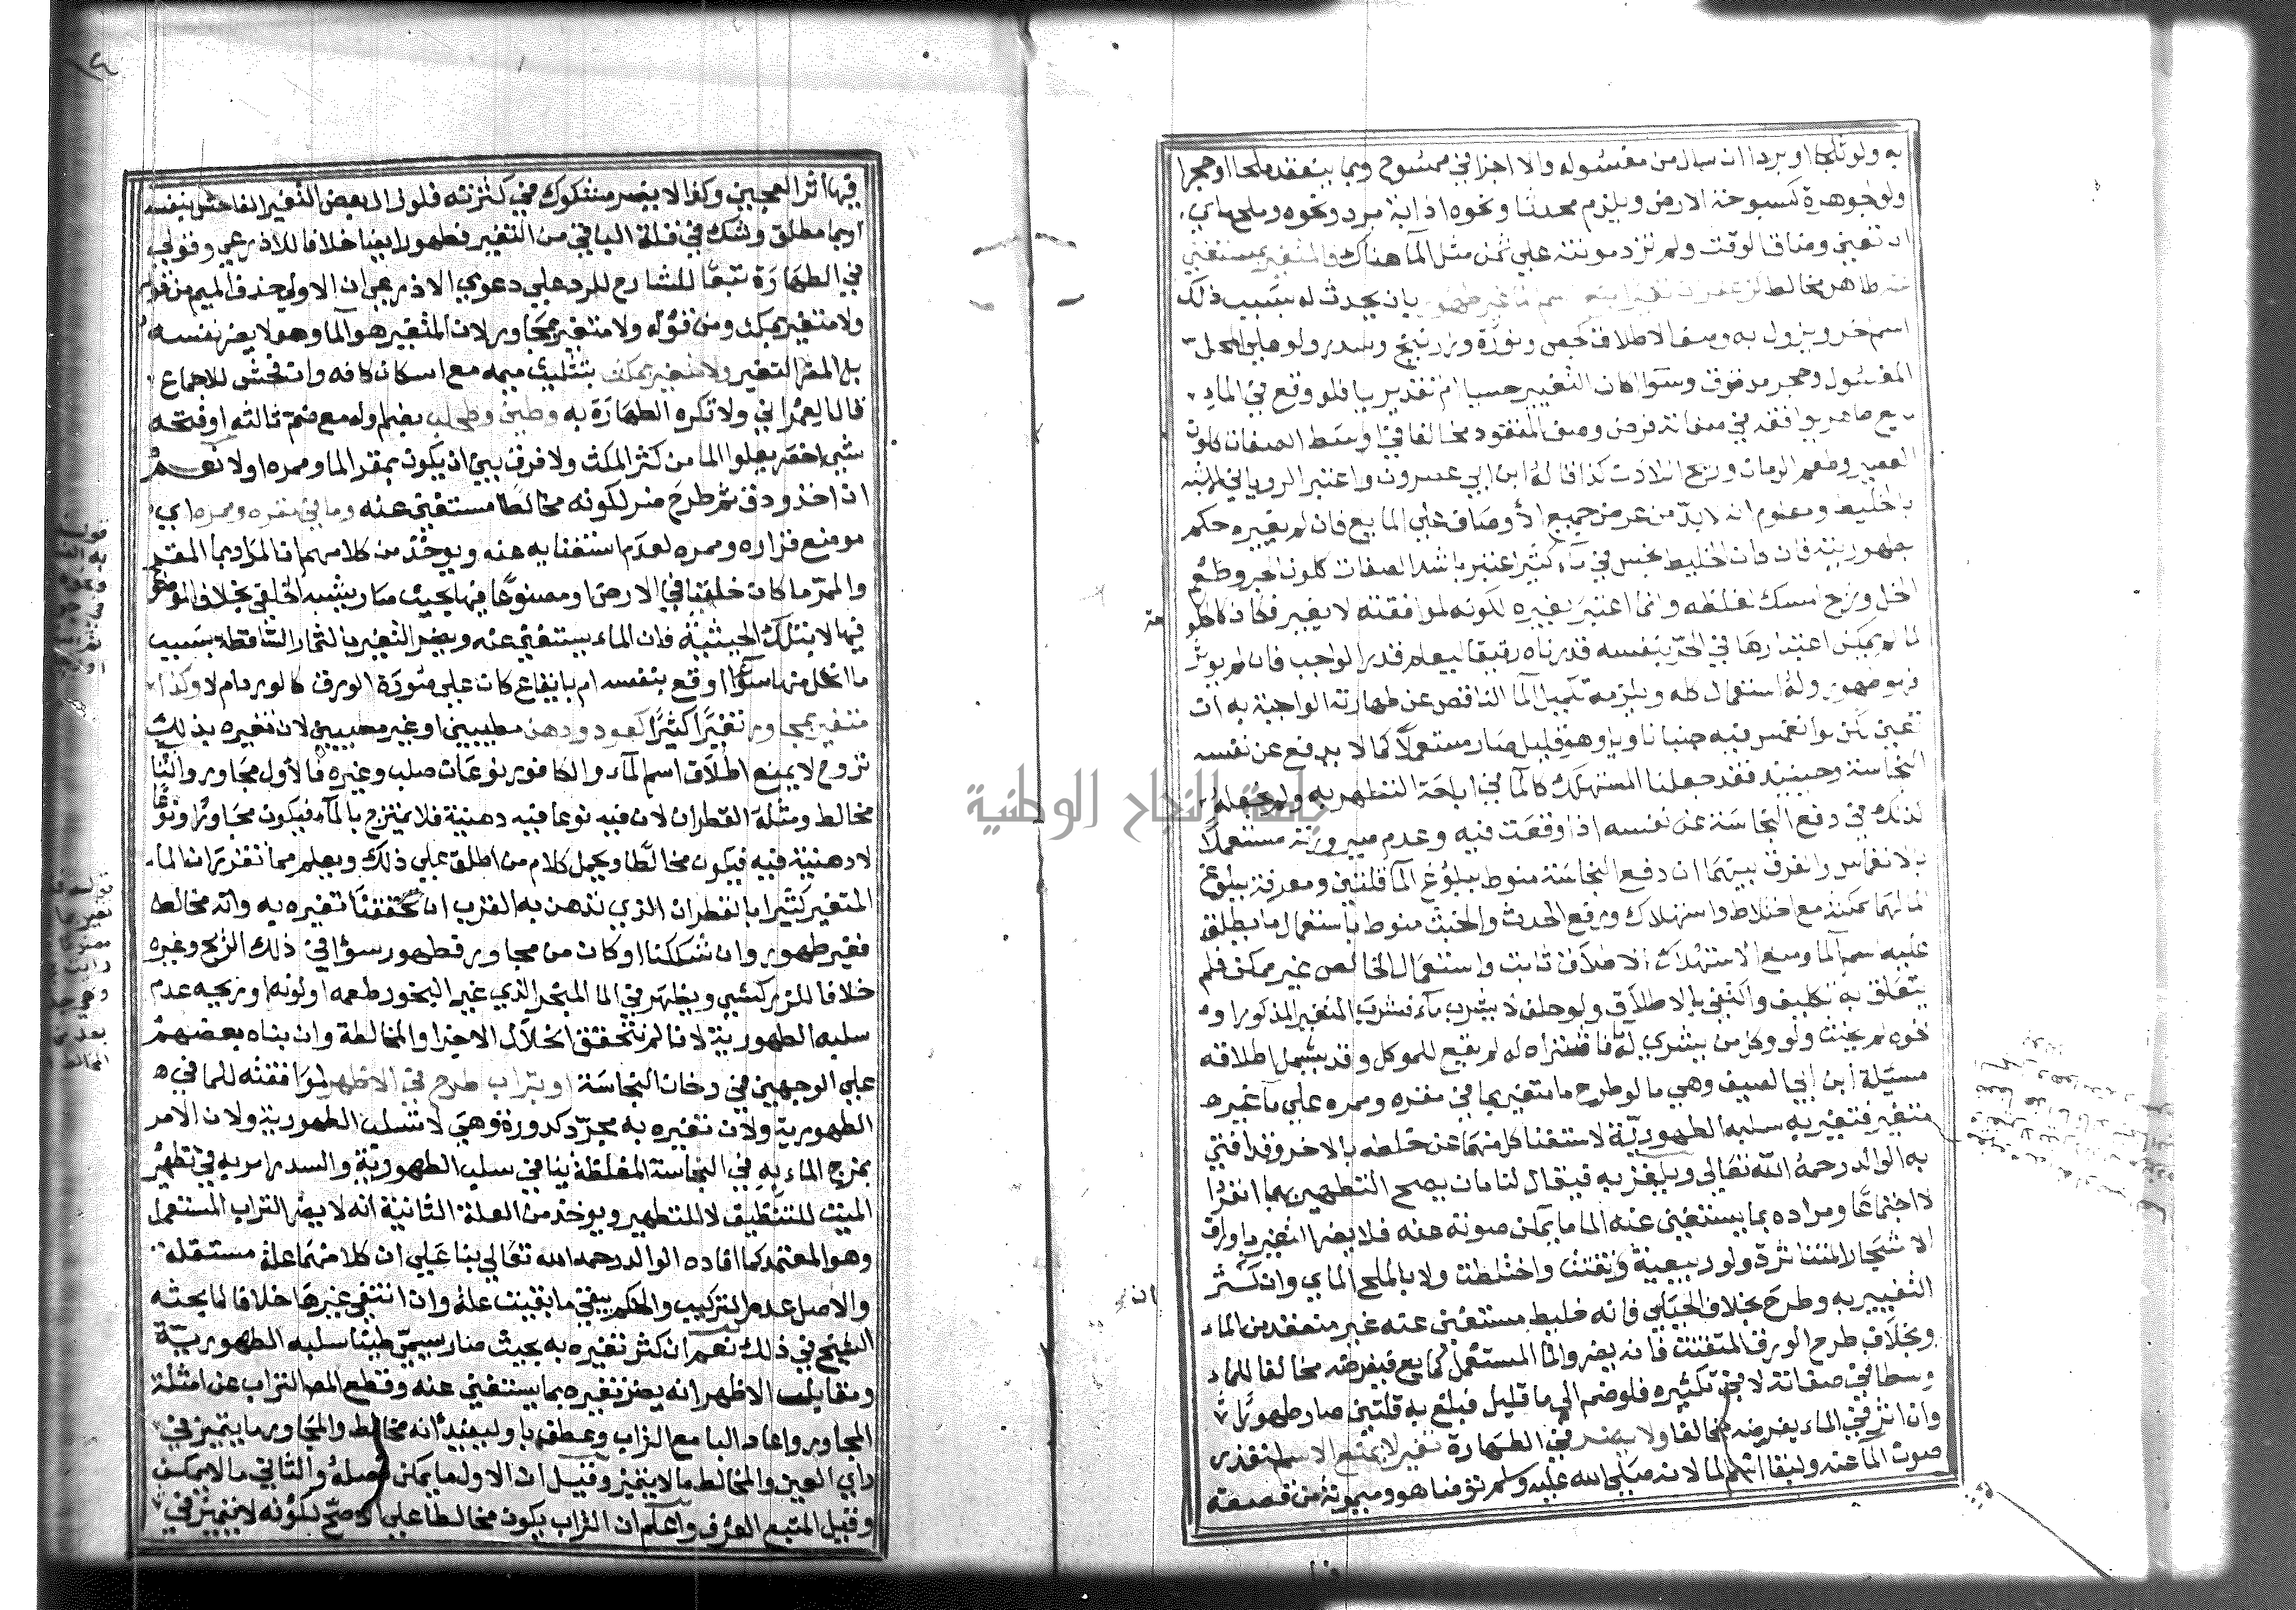 به ولو ثلجا او بردا ان سال من مغسوله والا اجزا في ممسوح وبما ينعقد ملحا او حجرا
ولو جوهرة كسبوخة الارض ويلزم محدثا ونحوه اذابة برد ونحوه وملح ماي
ان تعين وضاق الوقت ولم تزد مونته علي ثمن مثل الما هناك فالمتغير بمستغني
عنه طاهر مخالط كزعفران تغيرا يمنع اسم الما غير طهور بان يحدث له بسبب ذلك
اسم اخر ويزول به وصف الاطلاق كجص ونورة وزرنيخ وسدر ولو علي المحل
المغسول وحجر مدقوق وسوا كان التغيير حسيا ام تقديريا فلو وقع في الماء
مايع يوافقه في صفاته فرض وصف المفقود مخالفا في اوسط الصفات كلون
العصير وطعم الرمان وريح اللادن كذا قاله ابن ابي عصرون واعتبر الروياني الاشبه
بالخليط ومعلوم انه لا بد من عرض جميع الاوصاف علي المايع فان لم يغيره حكم
بطهوريته فان كان الخليط نجس في ماء كثير اعتبر باشد الصفات كلون الحبر وطعم
الخل وريح المسك لغلظه وانما اعتبر بغيره لكونه لموافقته لا يغير فكان كالحكومة
لما لم يمكن اعتبارها في الحر بنفسه قدرناه رقيقا ليعلم قدر الواجب فان لم يوثر
فهو طهور وله استعمال كله ويلزمه تكميل الما الناقص عن طهارته الواجبة به ان
تعين لكن لو انغمس فيه جنب ناويا وهو قليل صار مستعملا كما لا يدفع عن نفسه
النجاسة وحينئذ فقد جعلنا المستهلك كالما في اباحة التطهر به ولم نجعله
كذلك في دفع النجاسة عن نفسه اذا وقعت فيه وعدم صيرورته مستعملا
بالانغماس والفرق بينهما ان دفع النجاسة منوط ببلوغ الما قلتين ومعرفة بلوغ
الما لهما ممكنة مع اختلاط واستهلاك ورفع الحدث والخبث منوط باستعمال ما يطلق
عليه اسم الما ومع الاستهلاك الاطلاق ثابت واستعمال الخالص غير ممكن فلم
يتعلق به تكليف واكتفي بالاطلاق ولو حلف لا يشرب ماء فشرب المتغير المذكور او
نحوه لم يحنث ولو وكل من يشتري له ما فاشتراه له لم يقع للموكل وقد يشمل اطلاقه
مسيلة ابن ابي الصيف وهي ما لو طرح ما متغير بما في مقره وممره علي ما غير
متغير فتغير به سلبه الطهورية لاستغنا كل منهما عن خلطه بالاخر وقد افتي
به الوالد رحمه الله تعالي ويلغز به فيقال لنا مان يصح التطهير بهما انفرادا
لا اجتماعا ومراده بما يستغني عنه الما ما يمكن صونه عنه فلا يضر التغير باوراق
الاشجار المتناثرة ولو ربيعية وتفتت واختلطت ولا بالملح الماي وان كثر
التغيير به وطرح بخلاف الجبلي فانه خليط مستغني عنه غير منعقد من الماء
وبخلاف طرح الورق المتفتت فانه يضر والما المستعمل كمايع فيفرض مخالفا للماء
وسطا في صفاته لا في تكثيره فلو ضم الي ما قليل فبلغ به قلتين صار طهورا
وان اثر في الماء بفرضه مخالفا ولا يضر في الطهارة تغير لا يمنع الاسم لتعذر
صون الما عنه ولبقا اسم الما لانه صلي الله عليه وسلم توضا هو وميمونة من قصعة
فيها اثر العجين وكذا لا يضر مشكوك في كثرته فلو زال بعض التغير الفاحش بنفسه
او بما مطلق وشك في قلة الباقي من التغير فطهور ايضا خلافا للاذرعي وقولي
في الطهارة تبعا للشارح للرد علي دعوي الاذرعي ان الاولي حذف الميم من قوله
ولا متغير بمكث ومن قوله ولا متغير بمجاور لان المتغير هو الما وهو لا يضر نفسه
بل المضر التغير ولا متغير بمكث بتثليث ميمه مع اسكان كافه وان فحش للاجماع
قال العمراني ولا تكره الطهارة به وطين وطحلب بضم اوله مع ضم ثالثه او فتحه
شي اخضر يعلوا الما من كثر المكث ولا فرق بين ان يكون بمقر الما وممره اولا نعم
ان اخذ ودق ثم طرح ضر لكونه مخالطا مستغني عنه وما في مقره وممره اي
موضع قراره وممره لعدم استغنايه عنه ويوخذ من كلامهم ان المراد بما المقر
والممر ما كان خلقيا في الارض او مصنوعا فيها بحيث صار يشبه الخلقي بخلاف الموضوع
فيها لا بتلك الحيثية فان الماء يستغني عنه ويضر التغير بالثمار الساقطة بسبب
ما انحل منها سوا اوقع بنفسه ام بايقاع كان علي صورة الورق كالورد ام لا وكذا
متغير بمجاور تغيرا كثيرا كعود ودهن مطيبين او غير مطيبين لان تغيره بذلك
تروح لا يمنع اطلاق اسم الماء والكافور نوعان صلب وغيره فالاول مجاور والثاني
مخالط ومثله القطران لان فيه نوعا فيه دهنية فلا يمتزج بالماء فيكون مجاورا ونوعا
لا دهنية فيه فيكون مخالطا ويحمل كلام من اطلق علي ذلك ويعلم مما تقرر ان الماء
المتغير كثيرا بالقطران الذي تدهن به القرب ان تحققنا تغيره به وانه مخالط
فغير طهور وان شككنا او كان من مجاور فطهور سوا في ذلك الريح وغيره
خلافا للزركشي ويظهر في الما المبخر الذي غير البخور طعمه او لونه او ريحه عدم
سلبه الطهورية لانا لم نتحقق انحلال الاجزا والمخالطة وان بناه بعضهم
علي الوجهين في دخان النجاسة او بتراب طرح في الاظهر لموافقته للما في
الطهورية ولان تغيره به مجرد كدورة وهي لا تسلب الطهورية ولان الامر
بمزج الماء به في النجاسة المغلظة ينافي سلب الطهورية والسدر امر به في تطهير
الميت للتنظيف لا للتطهير ويوخذ من العلة الثانية انه لا يضر التراب المستعمل
وهو المعتمد كما افاده الوالد رحمه الله تعالي بنا علي ان كلا منهما علة مستقلة
والاصل عدم التركيب والحكم يبقي ما بقيت علة وان انتفي غيرها خلافا لما بحثه
الشيخ في ذلك نعم ان كثر تغيره به بحيث صار يسمي طينا سلبه الطهورية
ومقابل الاظهر انه يضر تغيره بما يستغني عنه وقطع المص التراب عن امثلة
المجاور واعاد البا مع التراب وعطف باو ليفيد انه مخالط والمجاور ما يتميز في
راي العين والمخالط ما لا يتميز وقيل ان الاول ما يمكن فصله والثاني ما لا يمكن
وقيل المتبع العرف واعلم ان التراب يكون مخالطا علي الاصح لكونه لا يتميز في
جامعة النجاح الوطنية